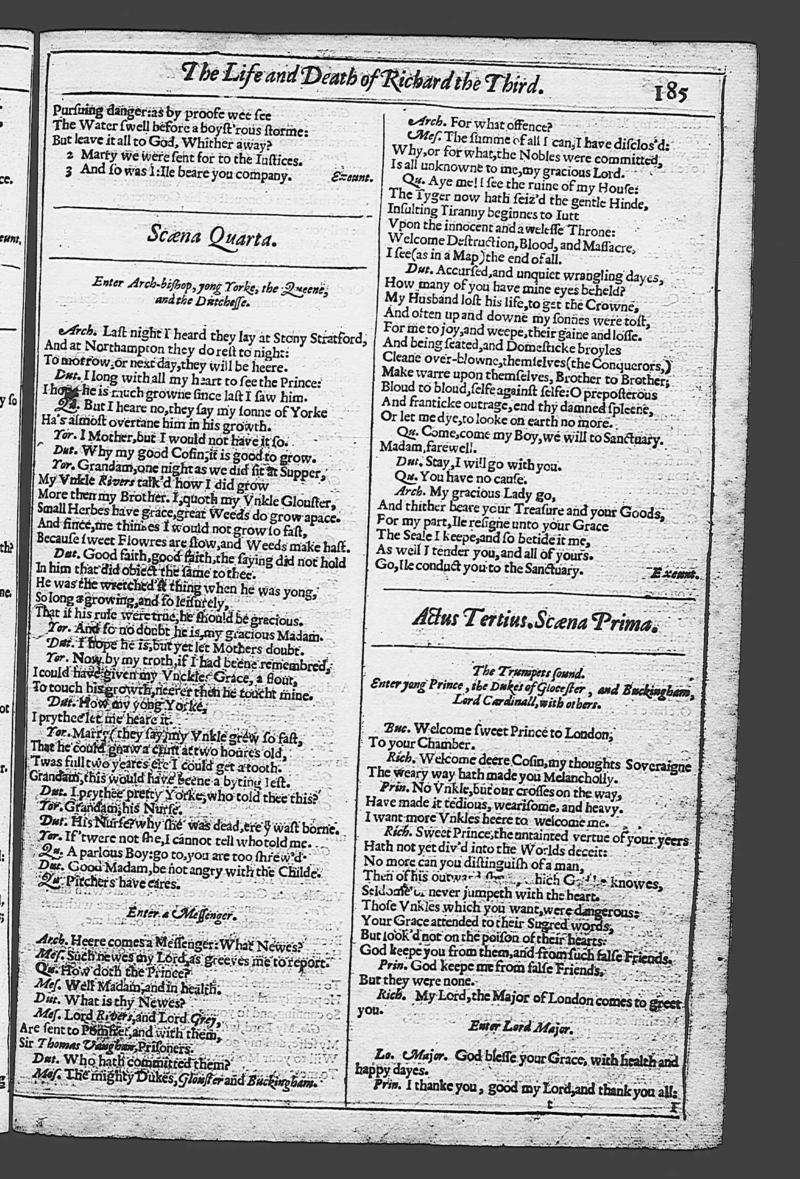 The Life and Death of Richard the Third.
185
Purſuing danger: as by proofe wee ſee
The Water ſwell before a boyſt'rous ſtorme:
But leave it all to God. Whither away?
2 Marry we were ſent for to the Iuſtices.
3 And ſo was I: Ile beare you company. Exeunt.
Scæna Quarta.
Enter Arch-biſhop, yong Yorke, the Queene,
and the Dutcheſſe.
Arch. Laſt night I heard they lay at Stony Stratford,
And at Northampton they do reſt to night:
To morrow, or next day, they will be heere.
Dut. I long with all my heart to ſee the Prince:
I hope he is much growne ſince laſt I ſaw him.
Qu. But I heare no, they ſay my ſonne of Yorke
Ha's almoſt overtane him in his growth.
Yor. I Mother, but I would not have it ſo.
Dut. Why my good Coſin, it is good to grow.
Yor. Grandam, one night as we did ſit at Supper,
My Vnkle Rivers talk'd how I did grow
More then my Brother. I, quoth my Vnkle Glouſter,
Small Herbes have grace, great Weeds do grow apace.
And ſince, me thinkes I would not grow ſo faſt,
Becauſe ſweet Flowres are ſlow, and Weeds make haſt.
Dut. Good faith, good faith, the ſaying did not hold
In him that did obiect the ſame to thee.
He was the wretched'ſt thing when he was yong,
So long a growing, and ſo leiſurely,
That if his rule were true, he ſhould be gracious.
Yor. And ſo no doubt he is, my gracious Madam.
Dut. I hope he is, but yet let Mothers doubt.
Yor. Now by my troth, if I had beene remembred,
I could have given my Vnckles Grace, a flout,
To touch his growth, neerer then he toucht mine.
Dut. How my yong Yorke,
I prythee let me heare it.
Yor. Marry (they ſay) my Vnkle grew ſo faſt,
That he could gnaw a cruſt at two houres old,
'Twas full two yeares ere I could get a tooth.
Grandam, this would have beene a byting Ieſt.
Dut. I prythee pretty Yorke, who told thee this?
Yor. Grandam, his Nurſe.
Dut. His Nurſe? why ſhe was dead, ere ÿ waſt borne.
Yor. If 'twere not ſhe, I cannot tell who told me.
Qu. A parlous Boy: go to, you are too ſhrew'd.
Dut. Good Madam, be not angry with the Childe.
Qu. Pitchers have eares.
Enter a Meſſenger.
Arch. Heere comes a Meſſenger: What Newes?
Meſ. Such newes my Lord, as greeves me to report.
Qu. How doth the Prince?
Meſ. Well Madam, and in health.
Dut. What is thy Newes?
Meſ. Lord Rivers, and Lord Grey,
Are ſent to Pomfret, and with them,
Sir Thomas Vaughan, Priſoners.
Dut. Who hath committed them?
Meſ. The mighty Dukes, Glouſter and Buckingham.
Arch. For what offence?
Meſ. The ſumme of all I can, I have diſclos'd:
Why, or for what, the Nobles were committed,
Is all unknowne to me, my gracious Lord.
Qu. Aye me! I ſee the ruine of my Houſe:
The Tyger now hath ſeiz'd the gentle Hinde,
Inſulting Tiranny beginnes to Iutt
Vpon the innocent and aweleſſe Throne:
Welcome Deſtruction, Blood, and Maſſacre,
I ſee (as in a Map) the end of all.
Dut. Accurſed, and unquiet wrangling dayes,
How many of you have mine eyes beheld?
My Husband loſt his life, to get the Crowne,
And often up and downe my ſonnes were toſt,
For me to joy, and weepe, their gaine and loſſe.
And being ſeated, and Domeſticke broyles
Cleane over-blowne, themſelves (the Conquerors,)
Make warre upon themſelves, Brother to Brother;
Bloud to bloud, ſelfe againſt ſelfe: O prepoſterous
And franticke outrage, end thy damned ſpleene,
Or let me dye, to looke on earth no more.
Qu. Come, come my Boy, we will to Sanctuary.
Madam, farewell.
Dut. Stay, I will go with you.
Qu. You have no cauſe.
Arch. My gracious Lady go,
And thither beare your Treaſure and your Goods,
For my part, Ile reſigne unto your Grace
The Seale I keepe, and ſo betide it me,
As well I tender you, and all of yours.
Go, Ile conduct you to the Sanctuary. Exeunt.
Actus Tertius. Scæna Prima.
The Trumpets ſound.
Enter yong Prince, the Dukes of Gloceſter, and Buckingham,
Lord Cardinall, with others.
Buc. Welcome ſweet Prince to London,
To your Chamber.
Rich. Welcome deere Coſin, my thoughts Soveraigne
The weary way hath made you Melancholly.
Prin. No Vnkle, but our croſſes on the way,
Have made it tedious, weariſome, and heavy.
I want more Vnkles heere to welcome me.
Rich. Sweet Prince, the untainted vertue of your yeers
Hath not yet div'd into the Worlds deceit:
No more can you diſtinguiſh of a man,
Then of his outward which knowes,
never jumpeth with the heart.
Thoſe Vnkles which you want, were dangerous:
Your Grace attended to their Sugred words,
But look'd not on the poiſon of their hearts:
God keepe you from them, and from ſuch falſe Friends.
Prin. God keepe me from falſe Friends,
But they were none.
Rich. My Lord, the Major of London comes to greet
you.
Enter Lord Major.
Lo. Major. God bleſſe your Grace, with health and
happy dayes.
Prin. I thanke you, good my Lord, and thank you all:
t I